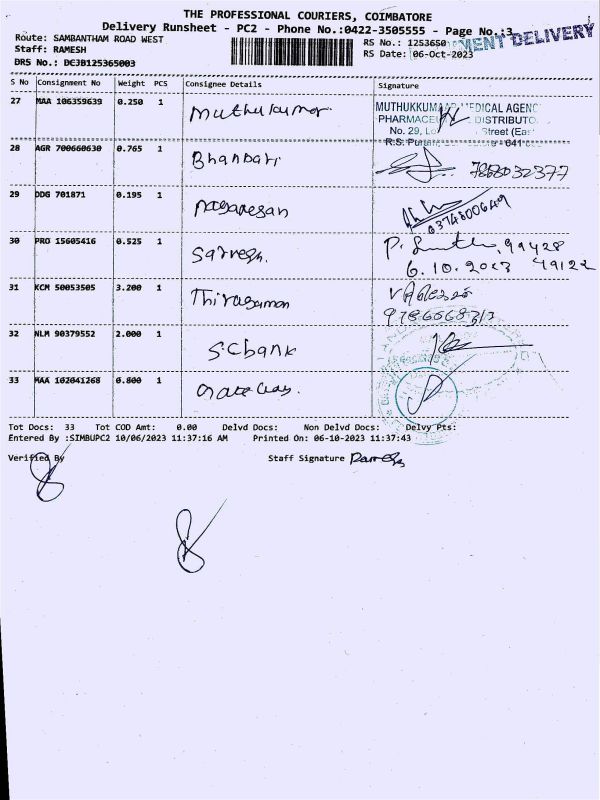 THE PROFESSIONAL COURIERS, COIMBATORE
Delivery Runsheet - PC2 - Phone No.:0422-3505555 - Page No.:3
Route: SAMBANTHAM ROAD WEST
RS No.: 1253650
MENT DELIVERY
Staff: RAMESH
RS Date: 06-Oct-2023
DRS No.: DCJB125365003
S No Consignment No Weight PCS Consignee Details Signature
27 MAA 106359639 0.250 1 Muthukumar
MUTHUKKUMAR MEDICAL AGENC
PHARMACEU DISTRIBUTO
No. 29, Lo Street (Eas
R.S. Puram 641
28 AGR 700660630 0.765 1 Bhandari 7868032377
29 DDG 701871 0.195 1 Nagaresan
6374800649
30 PRO 15605416 0.525 1 Sarvesh. P. 99428
6.10.2023 49122
31 KCM 50053505 3.200 1 Thivagaman
9786668313
32 NLM 90379552 2.000 1 S.C bank
33 MAA 102041268 0.800 1
Tot Docs: 33 Tot COD Amt: 0.00 Delvd Docs: Non Delvd Docs: Delvy Pts:
Entered By :SIMBUPC2 10/06/2023 11:37:16 AM Printed On: 06-10-2023 11:37:43
Verified By Staff Signature Ramesh